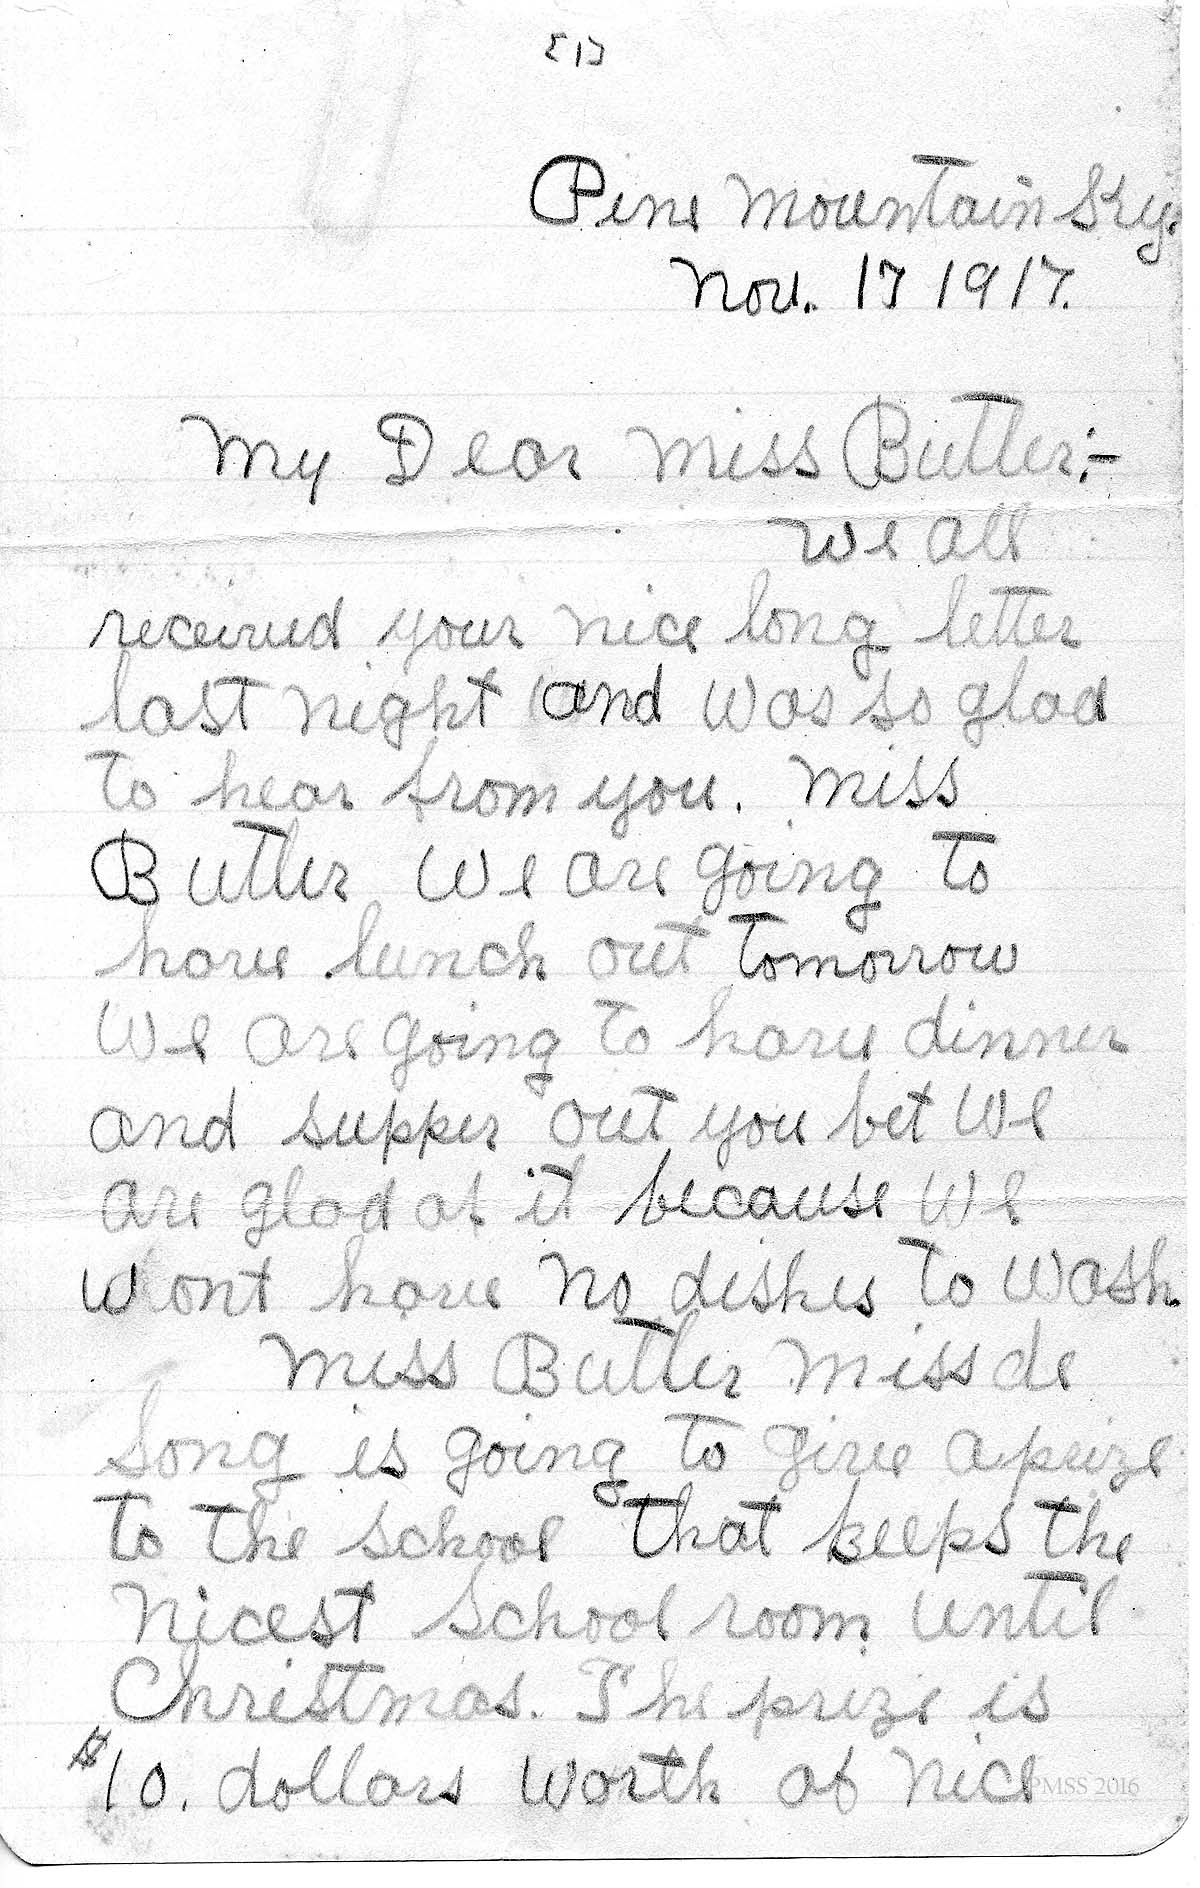 (1)
Pine Mountain Ky.
Nov. 17 1917.
My Dear Miss Butler:-
We all
received your nice long letter
last night and was so glad
to hear from you. Miss
Butler we are going to
have lunch out tomorrow
We are going to have dinner
and supper out you bet We
are glad of it because We
wont have no dishes to wash.
Miss Butler Miss de
Long is going to give a prize
to the school that keeps the
Nicest School room until
Christmas. The prize is
$10. dollars worth of nice
PMSS 2016